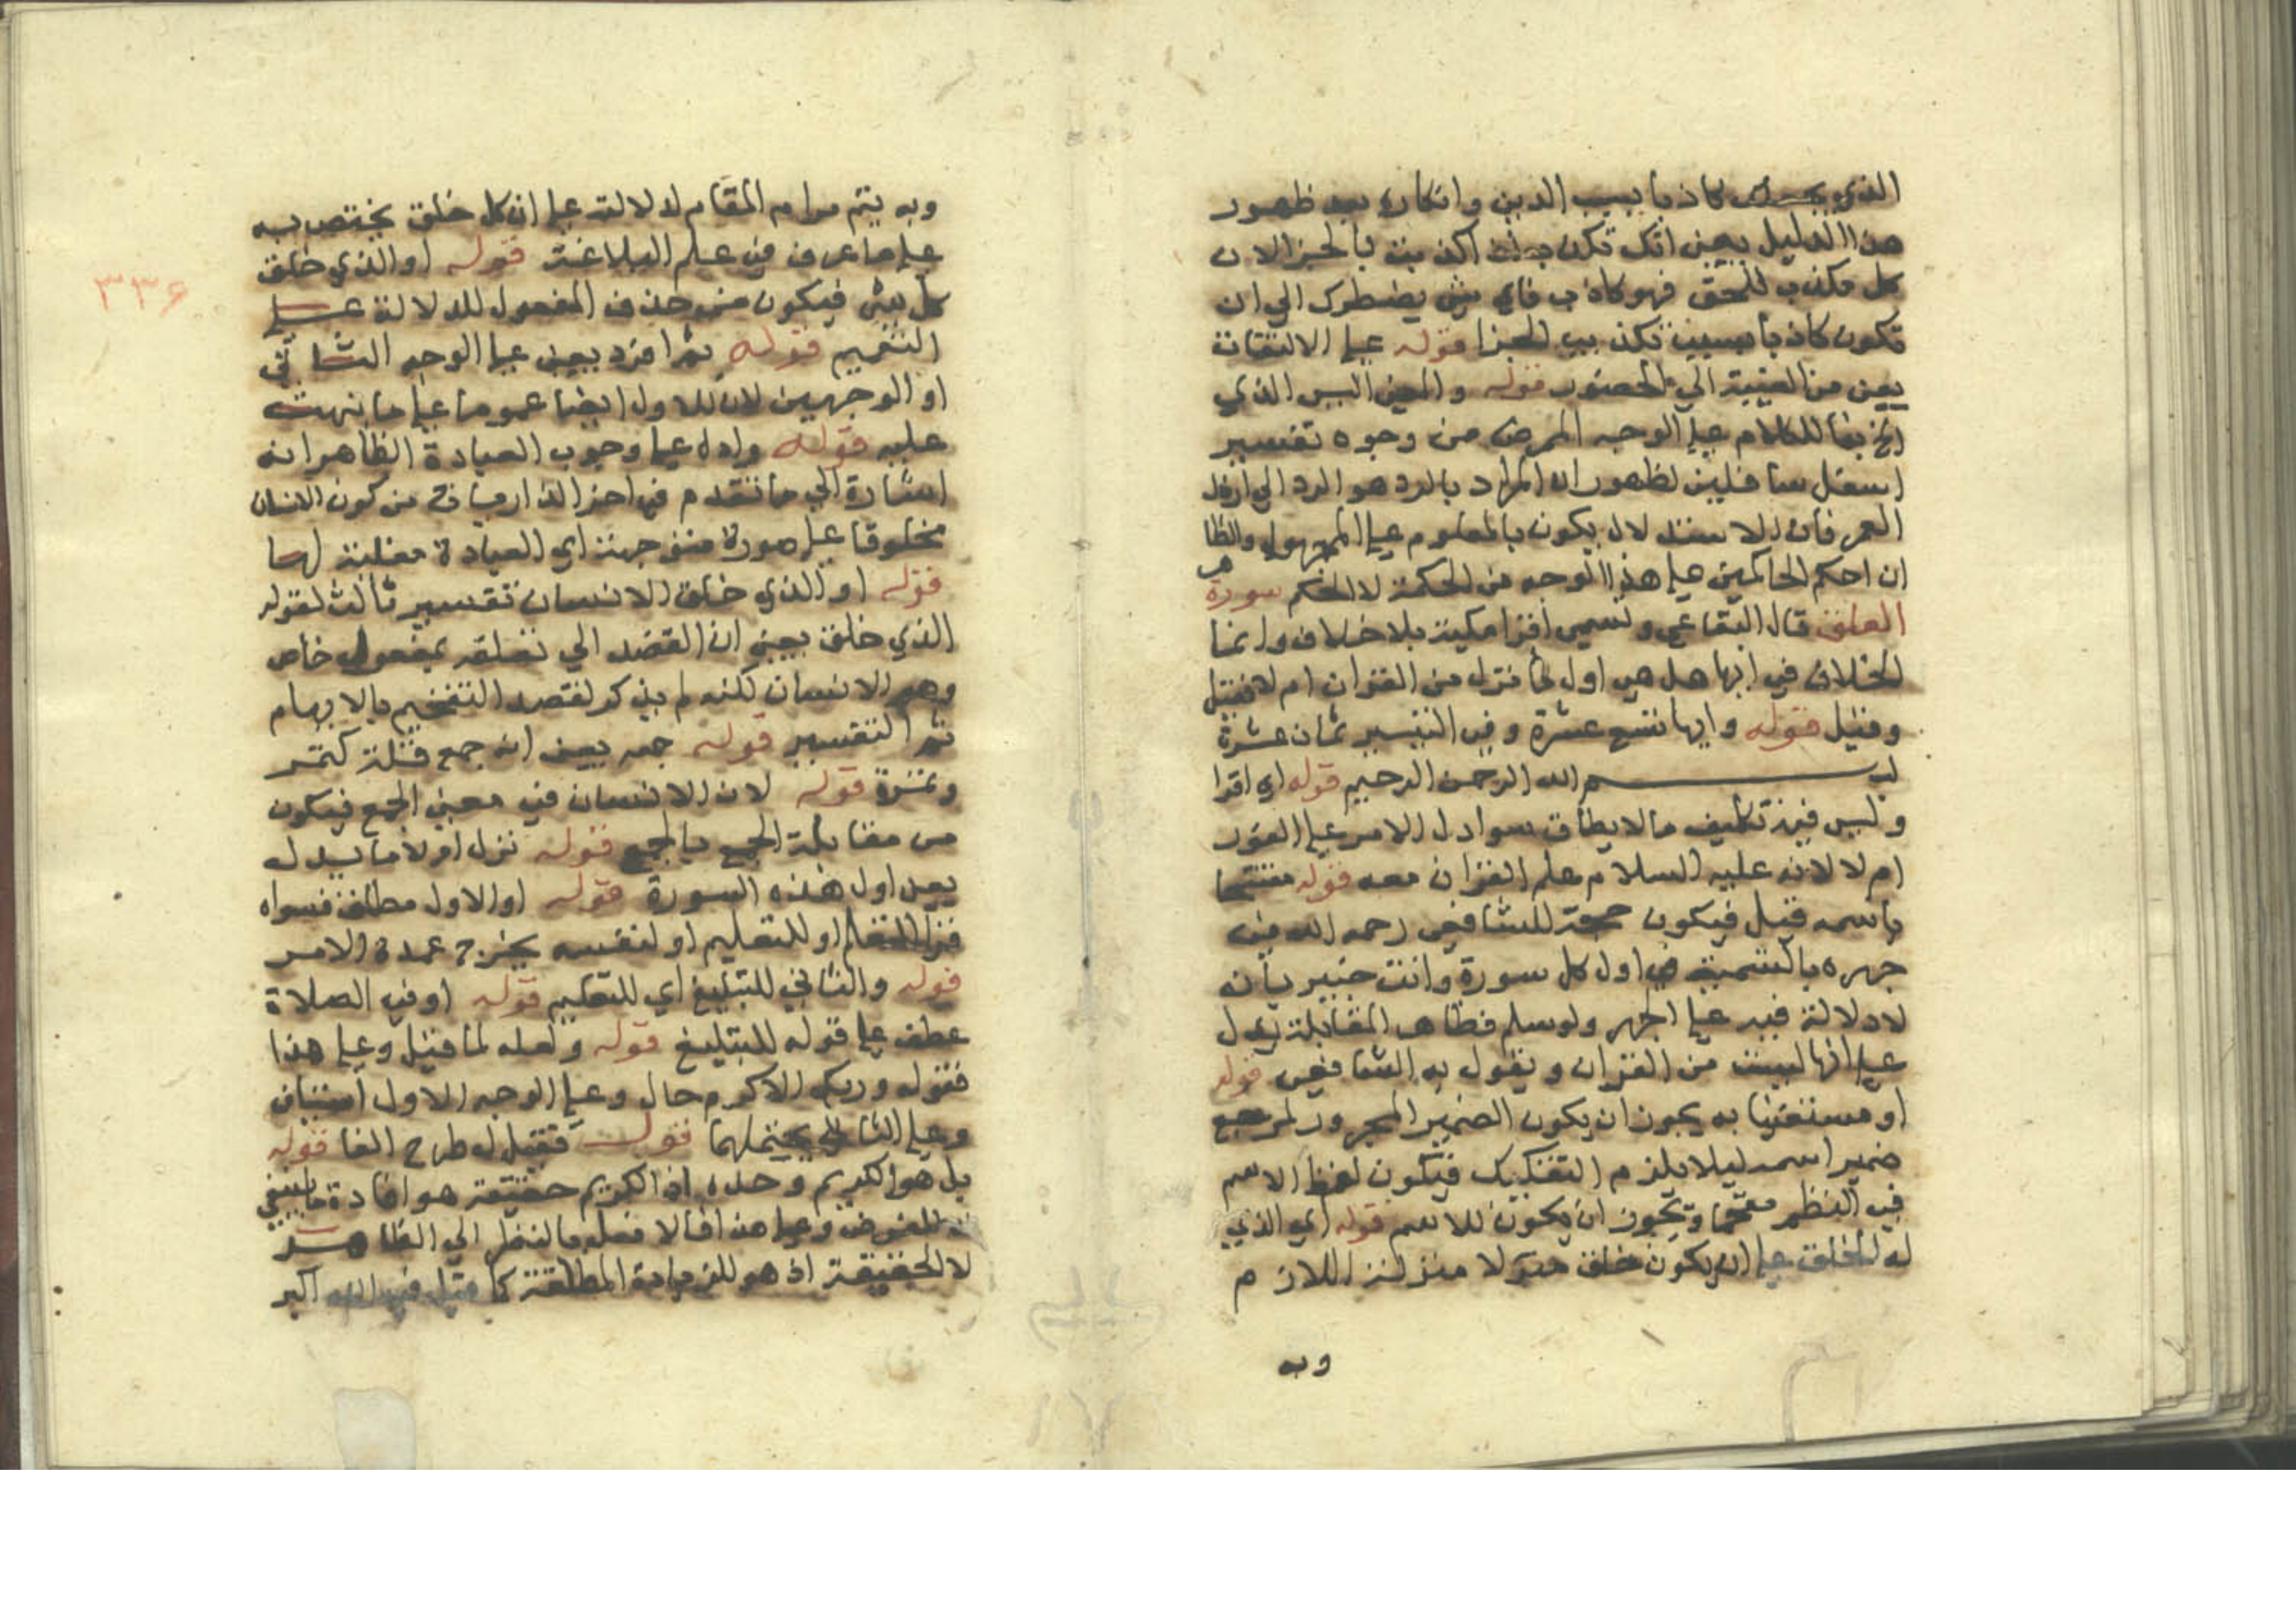 الذي يجعلك كاذبا بسبب الدين وانكاره بعد ظهور
هذا الدليل يعني انك تكذب اذا كذبت بالجزا لان
كل مكذب للحق فهو كاذب فاي شي يضطرك الي ان
تكون كاذبا بسبب تكذيب الجزا قوله علي الالتفات
يعني من الغيبة الي الحضور قوله والمعني اليس الذي
الخ بناء للكلام علي الوجه المرضي من وجوه تفسير
اسفل سافلين لظهور ان المراد بالرد هو الرد الي ارذل
العمر فان الاستدلال يكون بالمعلوم علي المجهول والظاهر
ان احكم الحاكمين علي هذا الوجه من الحكمة لا الحكم سورة
العلق قال البقاعي وتسمي اقرا مكية بلا خلاف وانما
الخلاف في انها هل هي اول ما نزل من القران ام لا فقيل
وقيل قوله وايها تسع عشرة وفي التيسير ثمان عشرة
بسم الله الرحمن الرحيم قوله اي اقرا
وليس فيه تكليف ما لا يطاق سوا دل الامر علي الفور
ام لا لانه عليه السلام علم القران معه قوله مفتتحا
باسمه قيل فيكون حجة للشافعي رحمه الله في
جهره بالتسمية في اول كل سورة وانت خبير بانه
لا دلالة فيه علي الجهر ولو سلم فظاهر المقابلة يدل
علي انها ليست من القران ويقول به الشافعي قوله
او مستعينا به يجوز ان يكون الضمير المجرور لمرجع
ضمير اسمه ليلا يلزم التفكيك فيكون لفظ الاسم
في النظم مقحما ويجوز ان يكون للاسم قوله اي الذي
له الخلق علي ان يكون خلق منزلا منزلة اللازم
وبه
٣٣٤
وبه يتم مرام المقام لدلالته علي ان كل خلق يختص به
علي ما عرف في علم البلاغة قوله او الذي خلق
كل شي فيكون من حذف المفعول للدلالة علي
التعميم قوله ثم افرد يعني علي الوجه الثاني
او الوجهين لان للاول ايضا عموما علي ما نبهت
عليه قوله وادل علي وجوب العبادة الظاهر انه
اشارة الي ما تقدم في اخر الذاريات من كون الانسان
مخلوقا علي صورة متوجهة اي العبادة مغلبة لها
قوله او الذي خلق الانسان تفسير ثالث لقوله
الذي خلق يعني ان القصد الي تعلقه بمفعول خاص
وهو الانسان لكنه لم يذكر لقصد التفخيم بالابهام
ثم التفسير قوله جمعه يعني انه جمع قلة كتمر
وتمرة قوله لان الانسان في معني الجمع فيكون
من مقابلة الجمع بالجمع قوله نزل اولا ما يدل
يعني اول هذه السورة قوله او الاول مطلق فسواه
للتعليم او لنفسه يخرج عهدة الامر
قوله والثاني للتبليغ اي للتعليم قوله او في الصلاة
عطف علي قوله للتبليغ قوله ولعله لما قيل وعلي هذا
فقوله وربك الاكرم حال وعلي الوجه الاول استيناف
وعلي الثاني يحتملهما قوله فقيل له طرح الفا قوله
بل هو الكريم وحده اذ الكريم حقيقة هو افادة ما ينبغي
لا لغرض وعلي هذا فالافعل بالنظر الي الظاهر
لا الحقيقة اذ هو للزيادة المطلقة كما قيل في الله اكبر